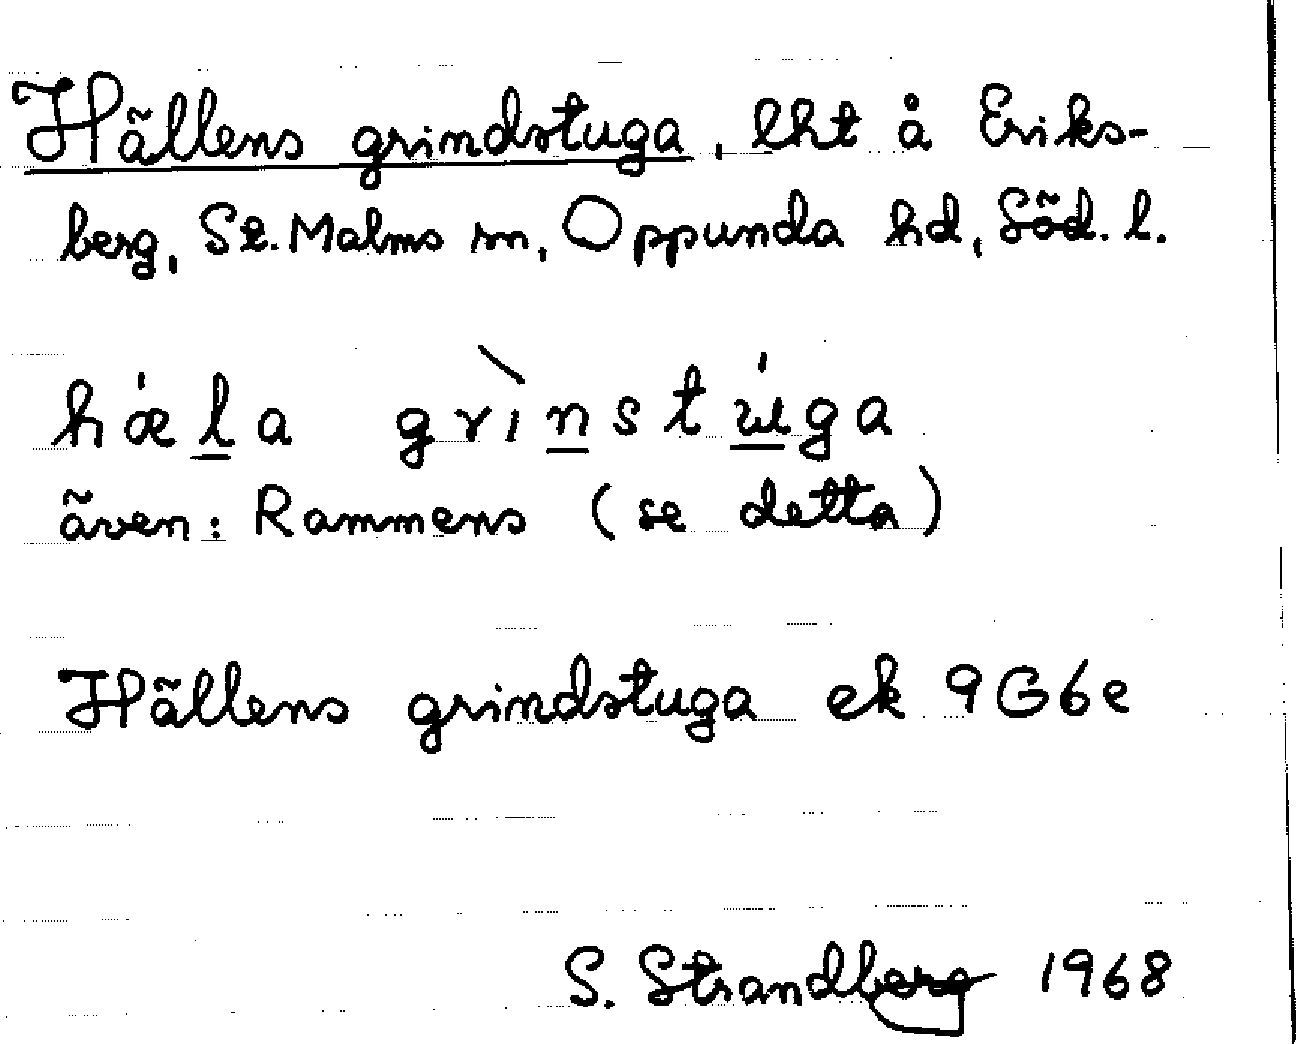 Hällens grindstuga, lht å Eriks-
berg, St. Malms sn, Oppunda hd, Söd. l.
hæ̍la grìnstu̍ga
även: Rammens (se detta)
Hällens grindstuga ek 9G6e
S. Strandberg 1968